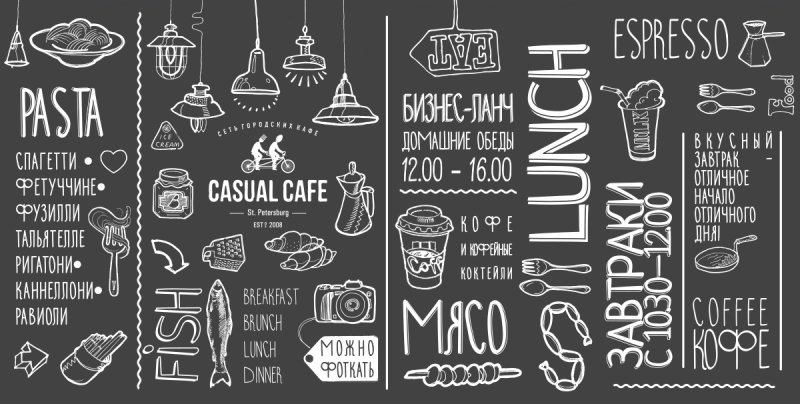 PASTA
СПАГЕТТИ
ФЕТУЧЧИНЕ
ФУЗИЛЛИ
ТАЛЬЯТЕЛЛЕ
РИГАТОНИ
КАННЕЛЛОНИ
РАВИОЛИ
ICE
CREAM
СЕТЬ ГОРОДСКИХ КАФЕ
CASUAL CAFE
St. Petersburg
EST. 2008
B
FISH
BREAKFAST
BRUNCH
LUNCH
DINNER
МОЖНО
ФОТКАТЬ
EAT
БИЗНЕС-ЛАНЧ
ДОМАШНИЕ ОБЕДЫ
12.00 - 16.00
КОФЕ
И КОФЕЙНЫЕ
КОКТЕЙЛИ
МЯСО
LUNCH
ESPRESSO
MILK
Food
ЗАВТРАКИ
С 10.30-12.00
ВКУСНЫЙ
ЗАВТРАК -
ОТЛИЧНОЕ
НАЧАЛО
ОТЛИЧНОГО
ДНЯ!
COFFEE
КОФЕ